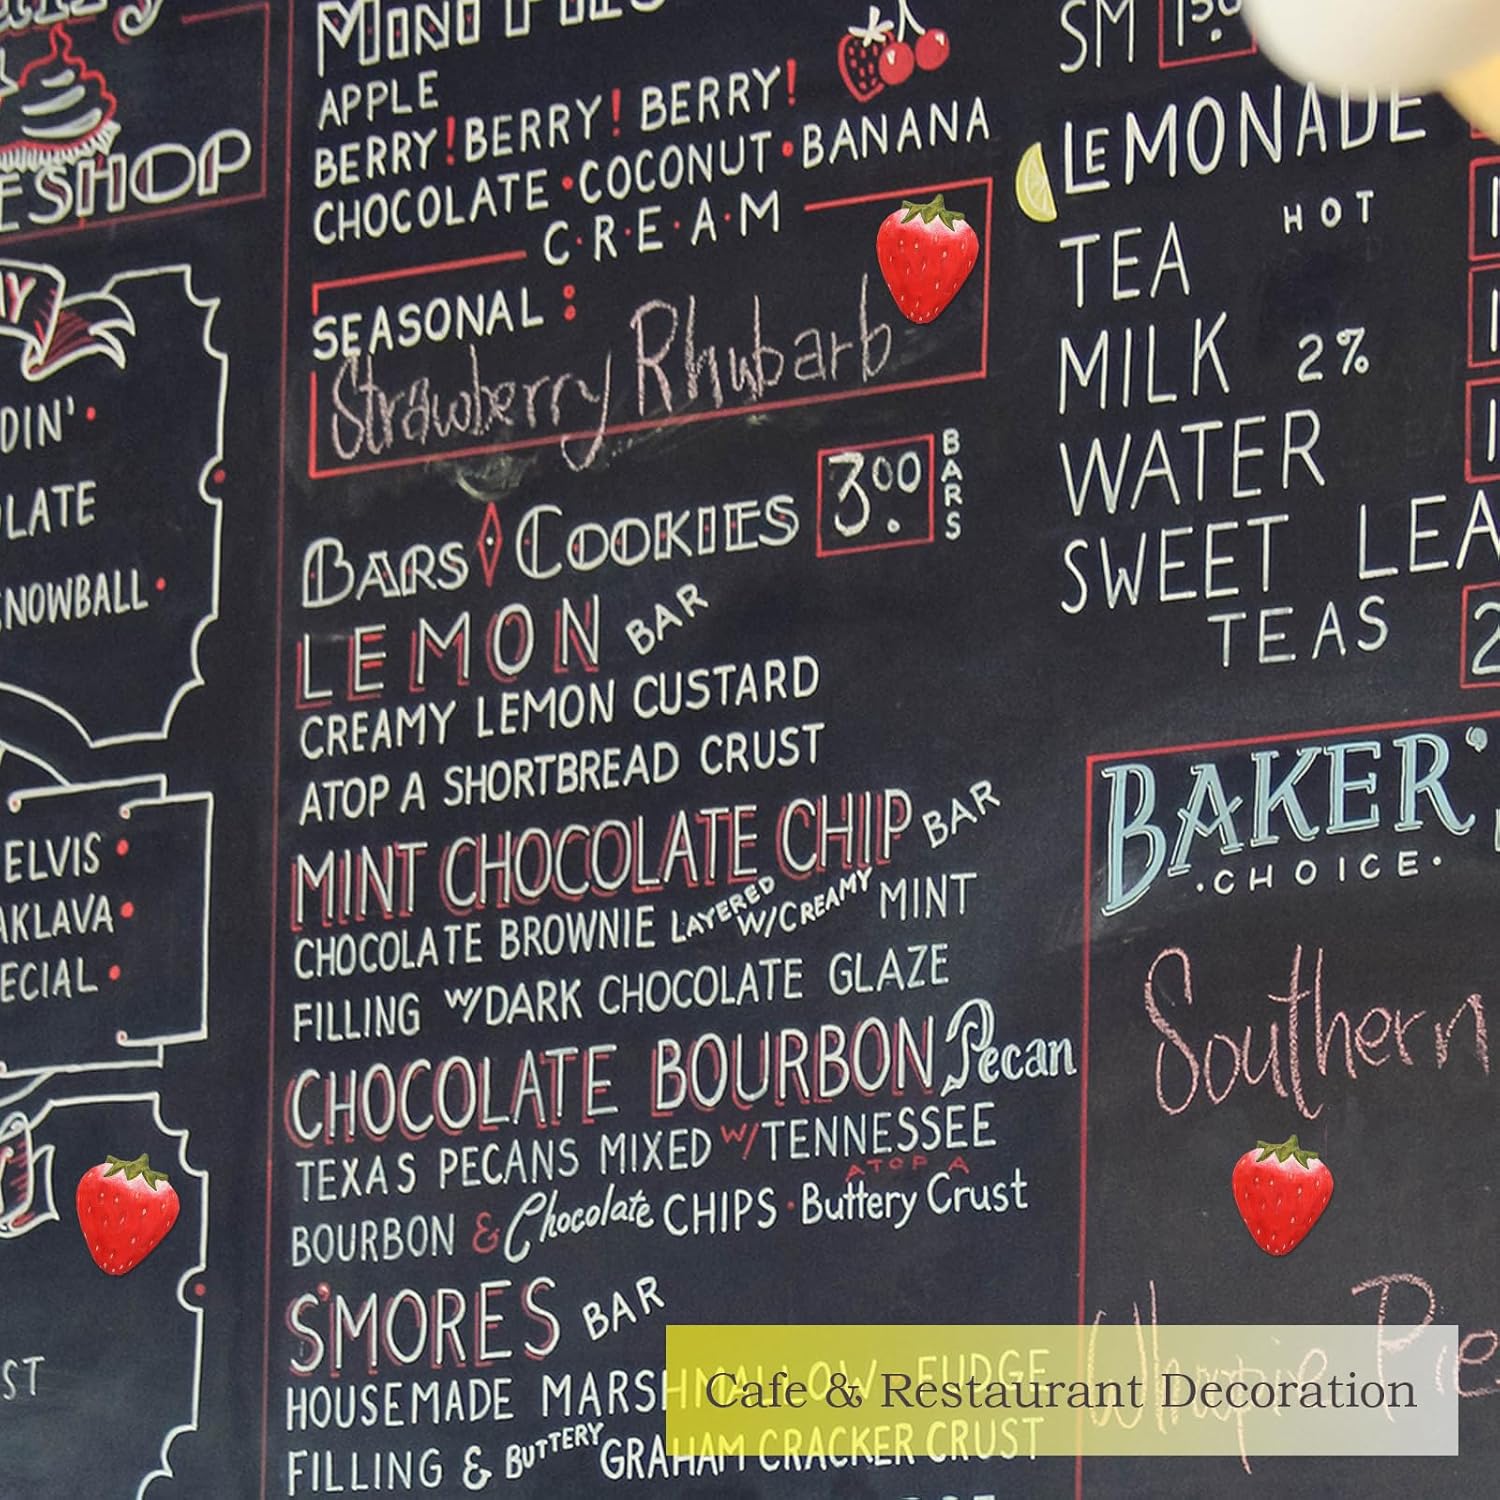 ESHOP
DIN'
LATE
NOWBALL
ELVIS
AKLAVA
ECIAL
ST
MINI PIES
APPLE
BERRY! BERRY! BERRY!
CHOCOLATE • COCONUT • BANANA
C·R·E·A·M
SEASONAL :
Strawberry Rhubarb
BARS COOKIES 3.00 BARS
LEMON BAR
CREAMY LEMON CUSTARD
ATOP A SHORTBREAD CRUST
MINT CHOCOLATE CHIP BAR
CHOCOLATE BROWNIE LAYERED W/CREAMY MINT
FILLING W/DARK CHOCOLATE GLAZE
CHOCOLATE BOURBON Pecan
TEXAS PECANS MIXED W/TENNESSEE
BOURBON & Chocolate CHIPS · ATOP A Buttery Crust
S'MORES BAR
HOUSEMADE MARSHMALLOW FUDGE
FILLING & BUTTERY GRAHAM CRACKER CRUST
SM 1.50
LEMONADE
TEA HOT
MILK 2%
WATER
SWEET LEA
TEAS 2
BAKER'
·CHOICE·
Southern
Whoopie Pie
Cafe & Restaurant Decoration